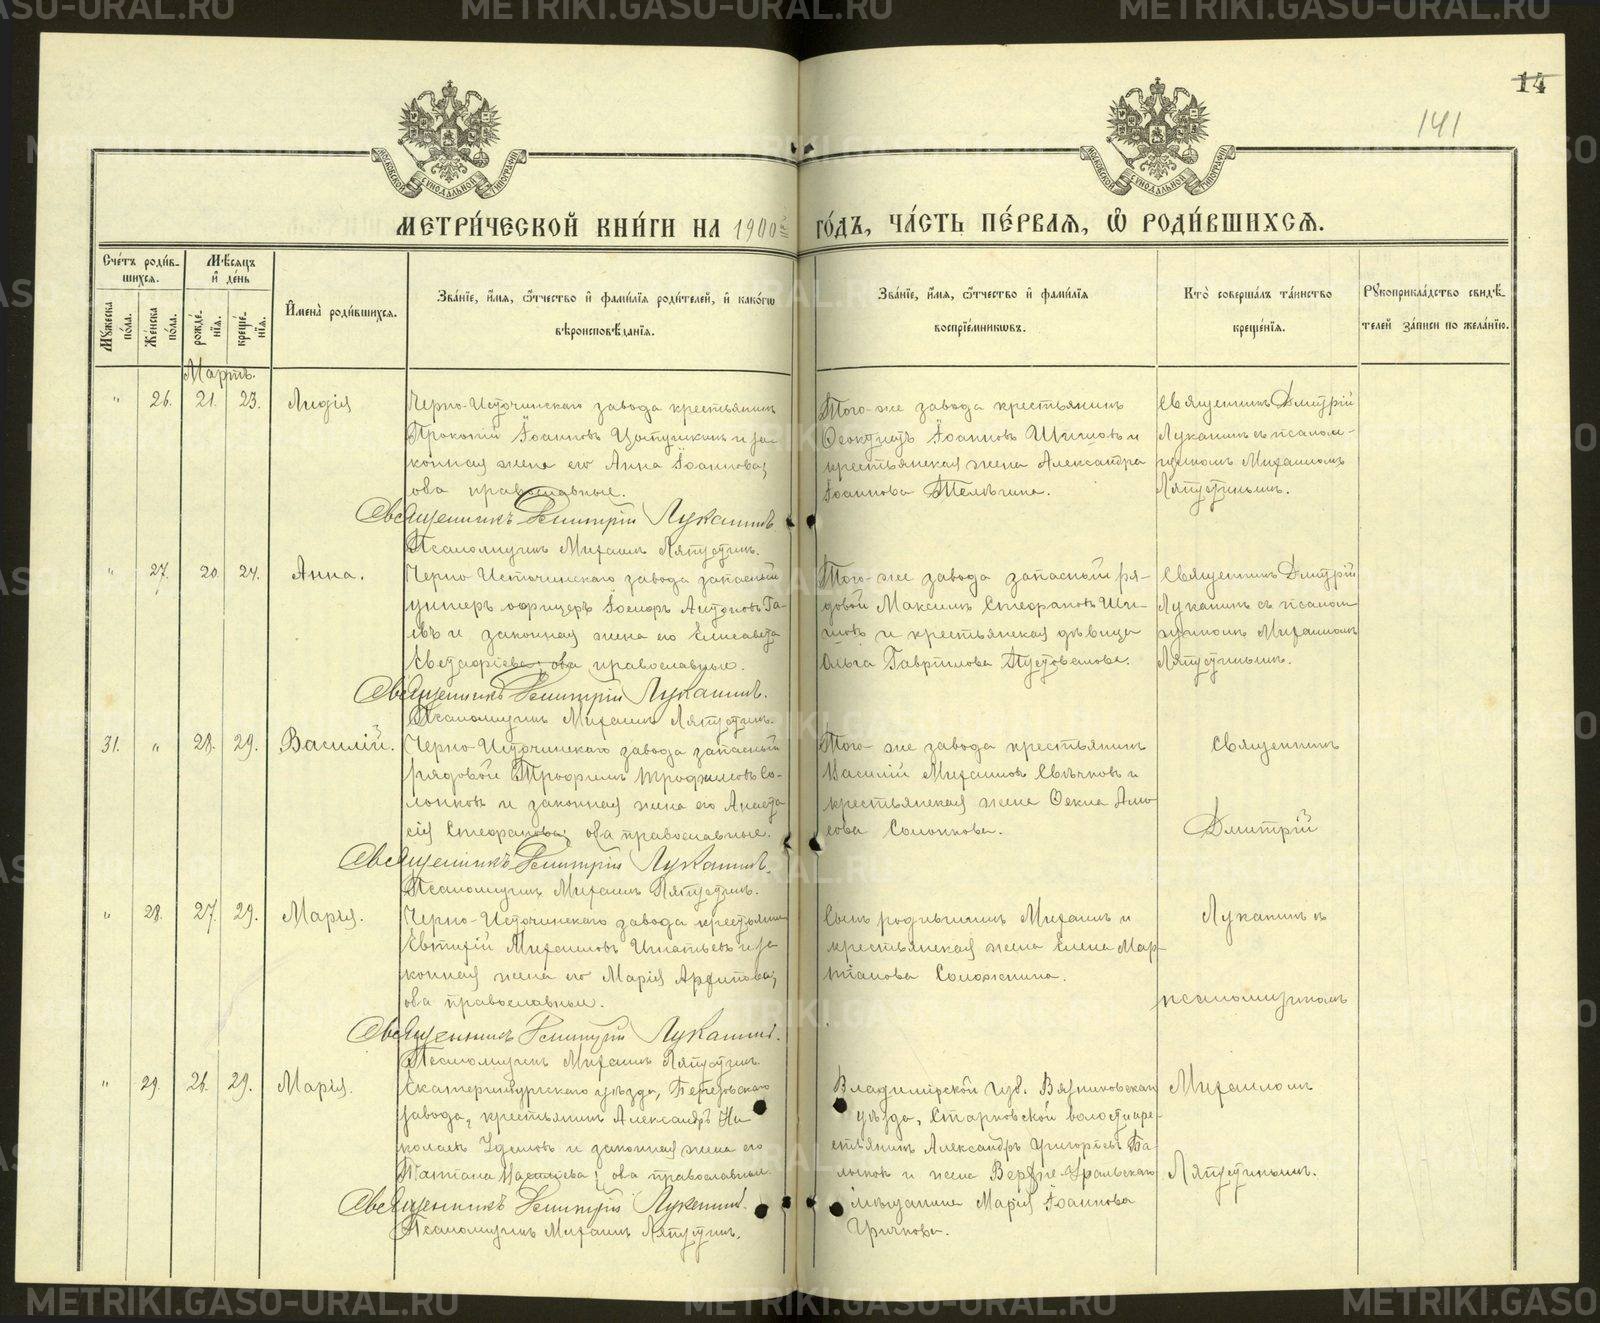 14
141
МОСКОВСКОЙ СѴНОДАЛЬНОЙ ТИПОГРАФІИ
МОСКОВСКОЙ СѴНОДАЛЬНОЙ ТИПОГРАФІИ
МЕТРИ́ЧЕСКОЙ КНИ́ГИ НА 1900й ГО́ДЪ, ЧА́СТЬ ПЕ́РВАЯ, Ѡ҆ РОДИ́ВШИХСЯ.
Сче́тъ роди́в-
шихся.
Мꙋжеска по́ла.
Же́нска по́ла.
Мѣ́сяцъ
и҆ де́нь
рожде́-
нїя.
креще́-
нїя.
И҆мена̀ роди́вшихся.
Зва́нїе, и҆́мя, ѻ҆́тчество и҆ фами́лїя роди́телей, и҆ како́гѡ
вѣроисповѣ́данїя.
Зва́нїе, и҆́мя, ѻ҆́тчество и҆ фами́лїя
воспрїе́мникѡвъ.
Кто̀ соверша́лъ та́инство
креще́нїя.
Рꙋкоприкла́дство свидѣ́-
телей за́писи по жела́нїю.
Мартъ.
" 26. 21. 23. Лидія
Черно-Источинскаго завода крестьянинъ
Прокопій Іоанновъ и за-
конная жена его Анна Іоаннова;
оба православные.
Священникъ Димитрій Луканинъ.
Псаломщикъ Михаилъ Ляпустинъ.
Того-же завода крестьянинъ
Ѳеоктистъ Іоанновъ Шишовъ и
крестьянская жена Александра
Іоаннова Телегина.
Священникъ Дмитрій
Луканинъ съ псалом-
щикомъ Михаиломъ
Ляпустинымъ.
" 27. 20. 24. Анна.
Черно-Источинскаго завода запасный
унтеръ-офицеръ Іосифъ Антоновъ Га-
евъ и законная жена его Елисавета
Евстафіева; оба православные.
Священникъ Димитрій Луканинъ.
Псаломщикъ Михаилъ Ляпустинъ.
Того-же завода запасный ря-
довой Максимъ Стефановъ Ши-
шовъ и крестьянская дѣвица
Ольга Гаврилова Пустовалова.
Священникъ Дмитрій
Луканинъ съ псалом-
щикомъ Михаиломъ
Ляпустинымъ.
31. " 28. 29. Василій.
Черно-Источинскаго завода запасный
рядовой Трофимъ Трофимовъ Со-
лонковъ и законная жена его Анаста-
сія Стефанова; оба православные.
Священникъ Димитрій Луканинъ.
Псаломщикъ Михаилъ Ляпустинъ.
Того-же завода крестьянинъ
Василій Михаиловъ Свѣчковъ и
крестьянская жена Ѳекла Амо-
сова Солонкова.
Священникъ
Дмитрій
" 28. 27. 29. Марія.
Черно-Источинскаго завода крестьянинъ
Евтихій Михаиловъ Игнатьевъ и за-
конная жена его Марія Архипова;
оба православные.
Священникъ Димитрій Луканинъ.
Псаломщикъ Михаилъ Ляпустинъ.
Сынъ родившихъ Михаилъ и
крестьянская жена Елена Мар-
тіанова
Луканинъ съ
псаломщикомъ
" 29. 26. 29. Марія.
Екатеринбургскаго уѣзда, Березовскаго
завода, крестьянинъ Александръ Ни-
колаевъ и законная жена его
Татіана оба православные.
Священникъ Димитрій Луканинъ.
Псаломщикъ Михаилъ Ляпустинъ.
Владимірской губ. Вязниковскаго
уѣзда, Старковской волости кре-
стьянинъ Александръ Григорьевъ Ба-
и жена Верхне-Уральскаго
мѣщанина Марія Іоаннова
Михаиломъ
Ляпустинымъ.
METRIKI.GASO-URAL.RU